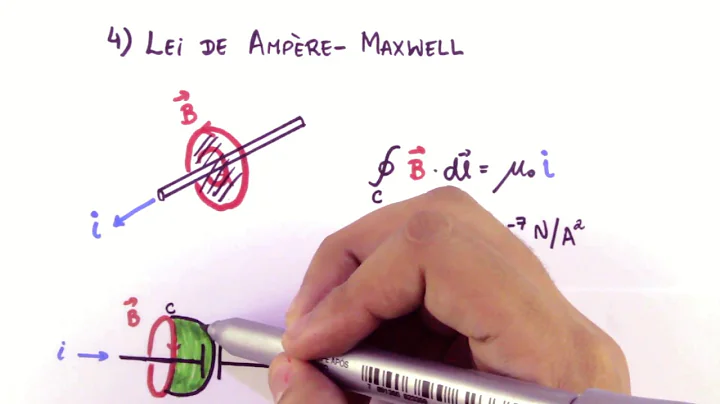 4) LEI DE AMPÈRE-MAXWELL
B
i
∮ B · dl = μ₀ i
C
⁻⁷ N/A²
B
C
i